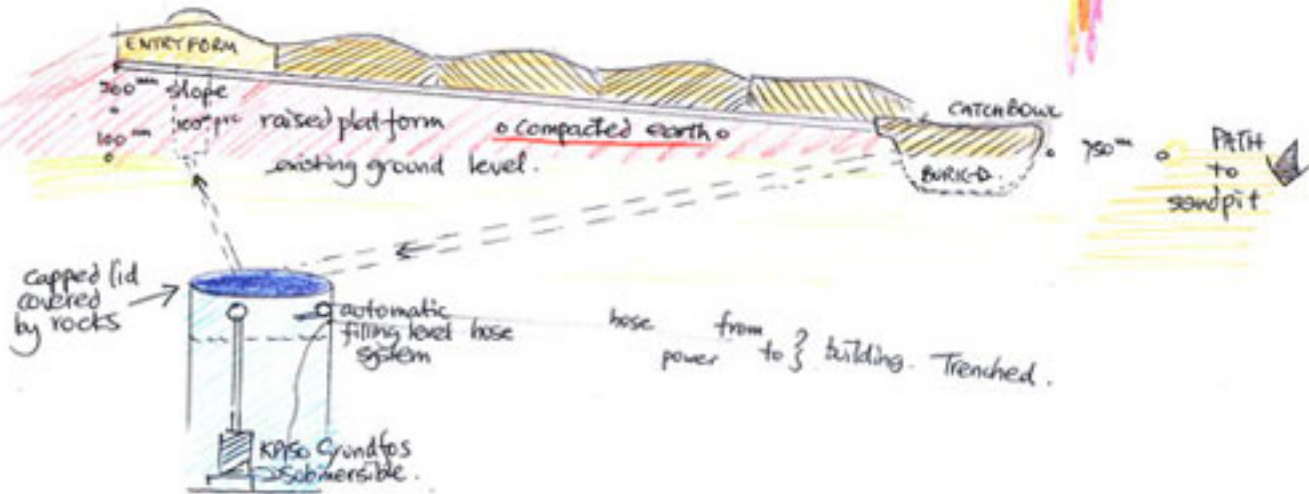 ENTRY FORM
slope
100mm
raised platform
compacted earth
existing ground level.
CATCHBOWL
BURIED.
750mm
PATH
to
sandpit
capped lid
covered
by rocks
automatic
filling level hose
system
hose from
power to } building. Trenched.
Grundfos
Submersible.